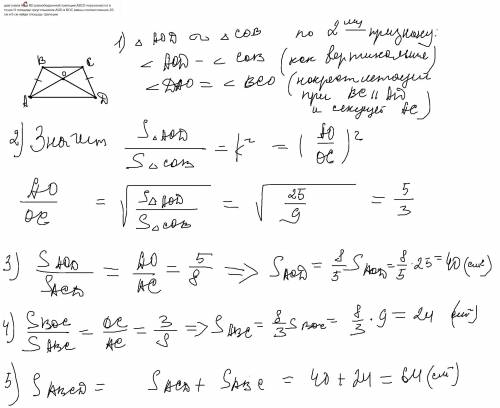 диагонали AC и BD равнобедренной трапеции ABCD пересекаются в
точке O площади треугольников AOD и BOC равны соответственно 25
см и 9 см найди площадь трапеции
B C
O
A D
1) △ AOD ~ △ COB по 2му признаку:
∠ AOD = ∠ COB (как вертикальные)
∠ DAO = ∠ BCO (накрестлежащие
при BC || AD
и секущей AC)
2) Значит S△AOD / S△COB = k² = (AO / OC)²
AO / OC = √(S△AOD / S△COB) = √(25 / 9) = 5 / 3
3) SAOD / SACD = AO / AC = 5 / 8 => SAOD = 8/5 SAOD = 8/5 · 25 = 40 (см²)
4) SBOC / SABC = OC / AC = 3 / 8 => SABC = 8/3 SBOC = 8/3 · 9 = 24 (см²)
5) SABCD = SACD + SABC = 40 + 24 = 64 (см²)